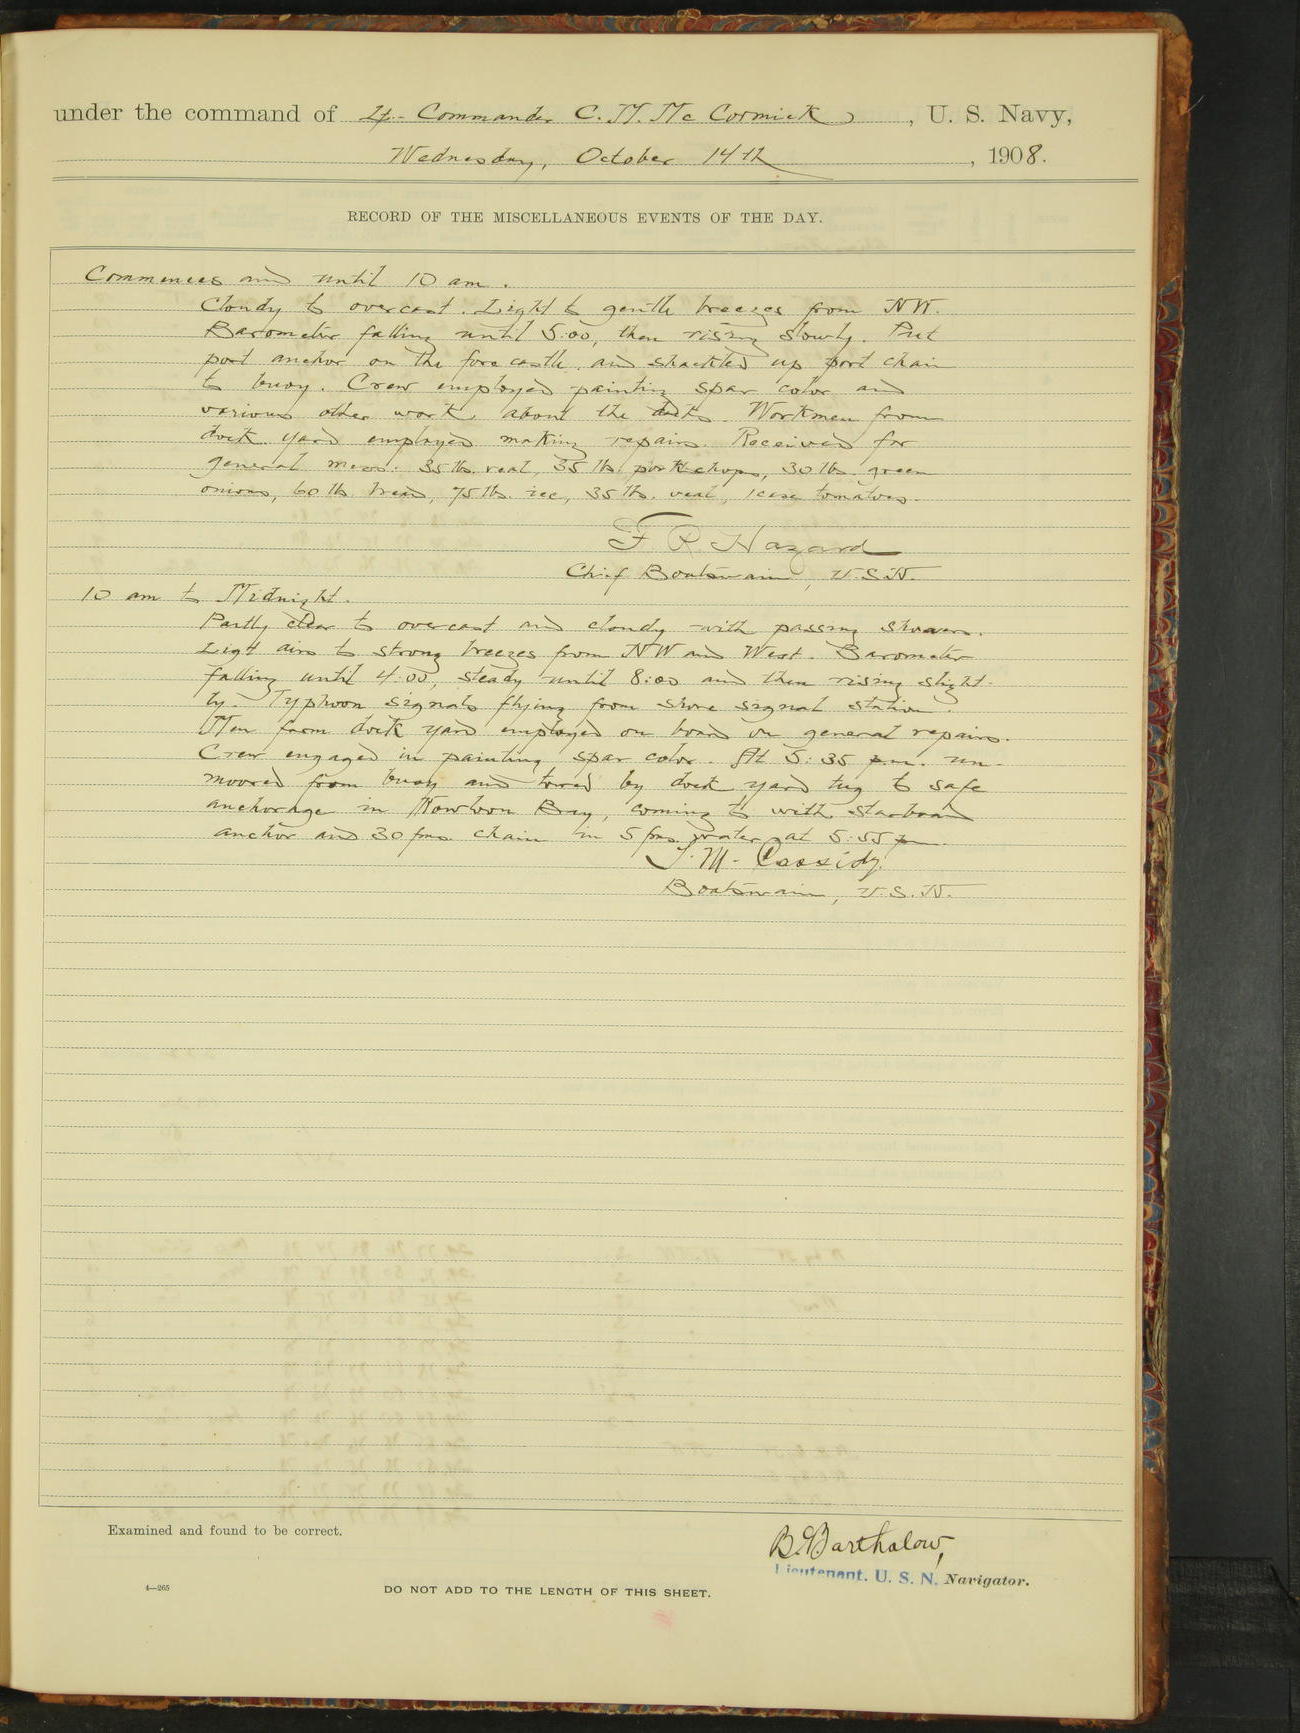 under the command of Lt. Commander C. M. McCormick, U. S. Navy,
Wednesday, October 14th, 1908.
RECORD OF THE MISCELLANEOUS EVENTS OF THE DAY.
Commences and until 10 am.
Cloudy to overcast. Light to gentle breezes from NW.
Barometer falling until 5:00, then rising slowly. Put
port anchor on the forecastle and shackled up port chain
to buoy. Crew employed painting spar color and
various other work about the decks. Workmen from
dock yard employed making repairs. Received for
general mess: 35 lbs. veal, 35 lbs. pork chops, 30 lbs. green
onions, 60 lbs bread, 75 lbs. ice, 35 lbs. veal, 1 case tomatoes.
F R Hazard
Chief Boatswain, U.S.N.
10 am to Midnight.
Partly clear to overcast and cloudy with passing showers.
Light airs to strong breezes from NW and West. Barometer
falling until 4:00, steady until 8:00 and then rising slight-
ly. Typhoon signals flying from shore signal station.
Men from dock yard employed on board on general repairs.
Crew engaged in painting spar color. At 5:35 p.m. un-
moored from buoy and towed by dock yard tug to safe
anchorage in Kowloon Bay, coming to with starboard
anchor and 30 fms. chain in 5 fms. water at 5:55 pm.
J. M. Cassidy.
Boatswain, U.S.N.
Examined and found to be correct.
B. Barthalow,
Lieutenant. U. S. N. Navigator.
4—265
DO NOT ADD TO THE LENGTH OF THIS SHEET.